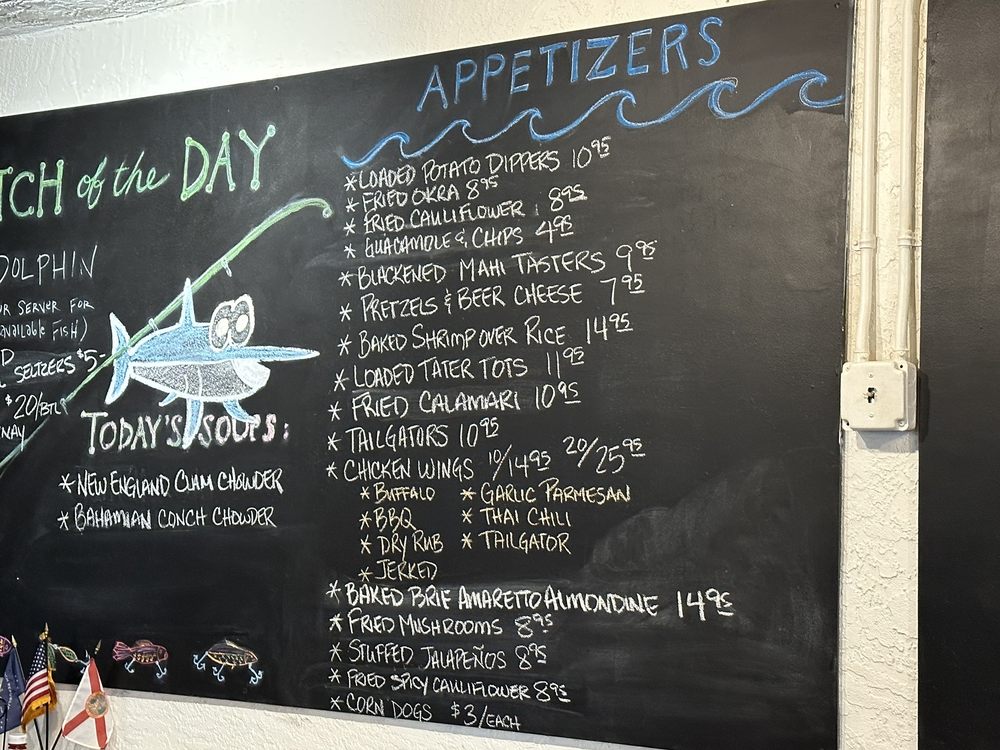 TCH of the DAY
DOLPHIN
UR SERVER FOR
available FISH)
SELTZERS $5-
$20/BTL
NAY
TODAY'S SOUPS:
* NEW ENGLAND CLAM CHOWDER
* BAHAMIAN CONCH CHOWDER
APPETIZERS
* LOADED POTATO DIPPERS 10.95
* FRIED OKRA 8.95
* FRIED CAULIFLOWER 8.95
* GUACAMOLE & CHIPS 4.95
* BLACKENED MAHI TASTERS 9.95
* PRETZELS & BEER CHEESE 7.95
* BAKED SHRIMP OVER RICE 14.95
* LOADED TATER TOTS 11.95
* FRIED CALAMARI 10.95
* TAILGATORS 10.95
* CHICKEN WINGS 10/14.95 20/25.95
* BUFFALO * GARLIC PARMESAN
* BBQ * THAI CHILI
* DRY RUB * TAILGATOR
* JERKED
* BAKED BRIE AMARETTO ALMONDINE 14.95
* FRIED MUSHROOMS 8.95
* STUFFED JALAPEÑOS 8.95
* FRIED SPICY CAULIFLOWER 8.95
* CORN DOGS $3/EACH